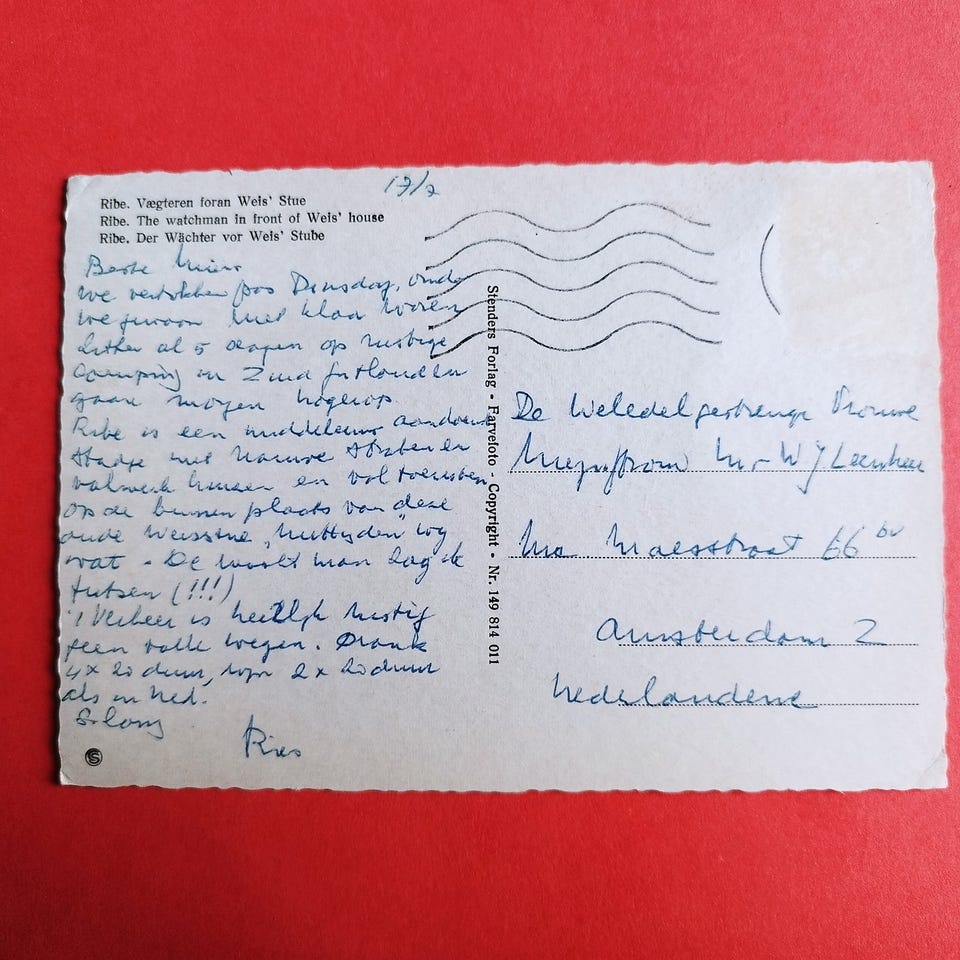 17/7
Ribe. Vægteren foran Weis' Stue
Ribe. The watchman in front of Weis' house
Ribe. Der Wächter vor Weis' Stube
Beste
we vertokken pas Dinsdag, omdat
we gewoon niet klaar waren
zitten al 5 dagen op rustige
Camping in Zuid Jutland en
gaan morgen hogerop.
Ribe is een middeleeuws aandoend
stadje met nauwe straten en
vakwerk huizen en vol toeristen.
op de binnen plaats van deze
oude Weisstue
wat. De
fietsen (!!!)
't Verkeer is heerlijk rustig
geen volle wegen. Drank
4x zo duur, wijn 2x zo duur
als in Ned.
So long
Kies
Stenders Forlag • Farvefoto - Copyright • Nr. 149 814 011
De Weledelgestrenge Vrouwe
Mejuffrouw Mr. W J Leenheer
Maasstraat 66 bv
Amsterdam Z
Nederlandene
S